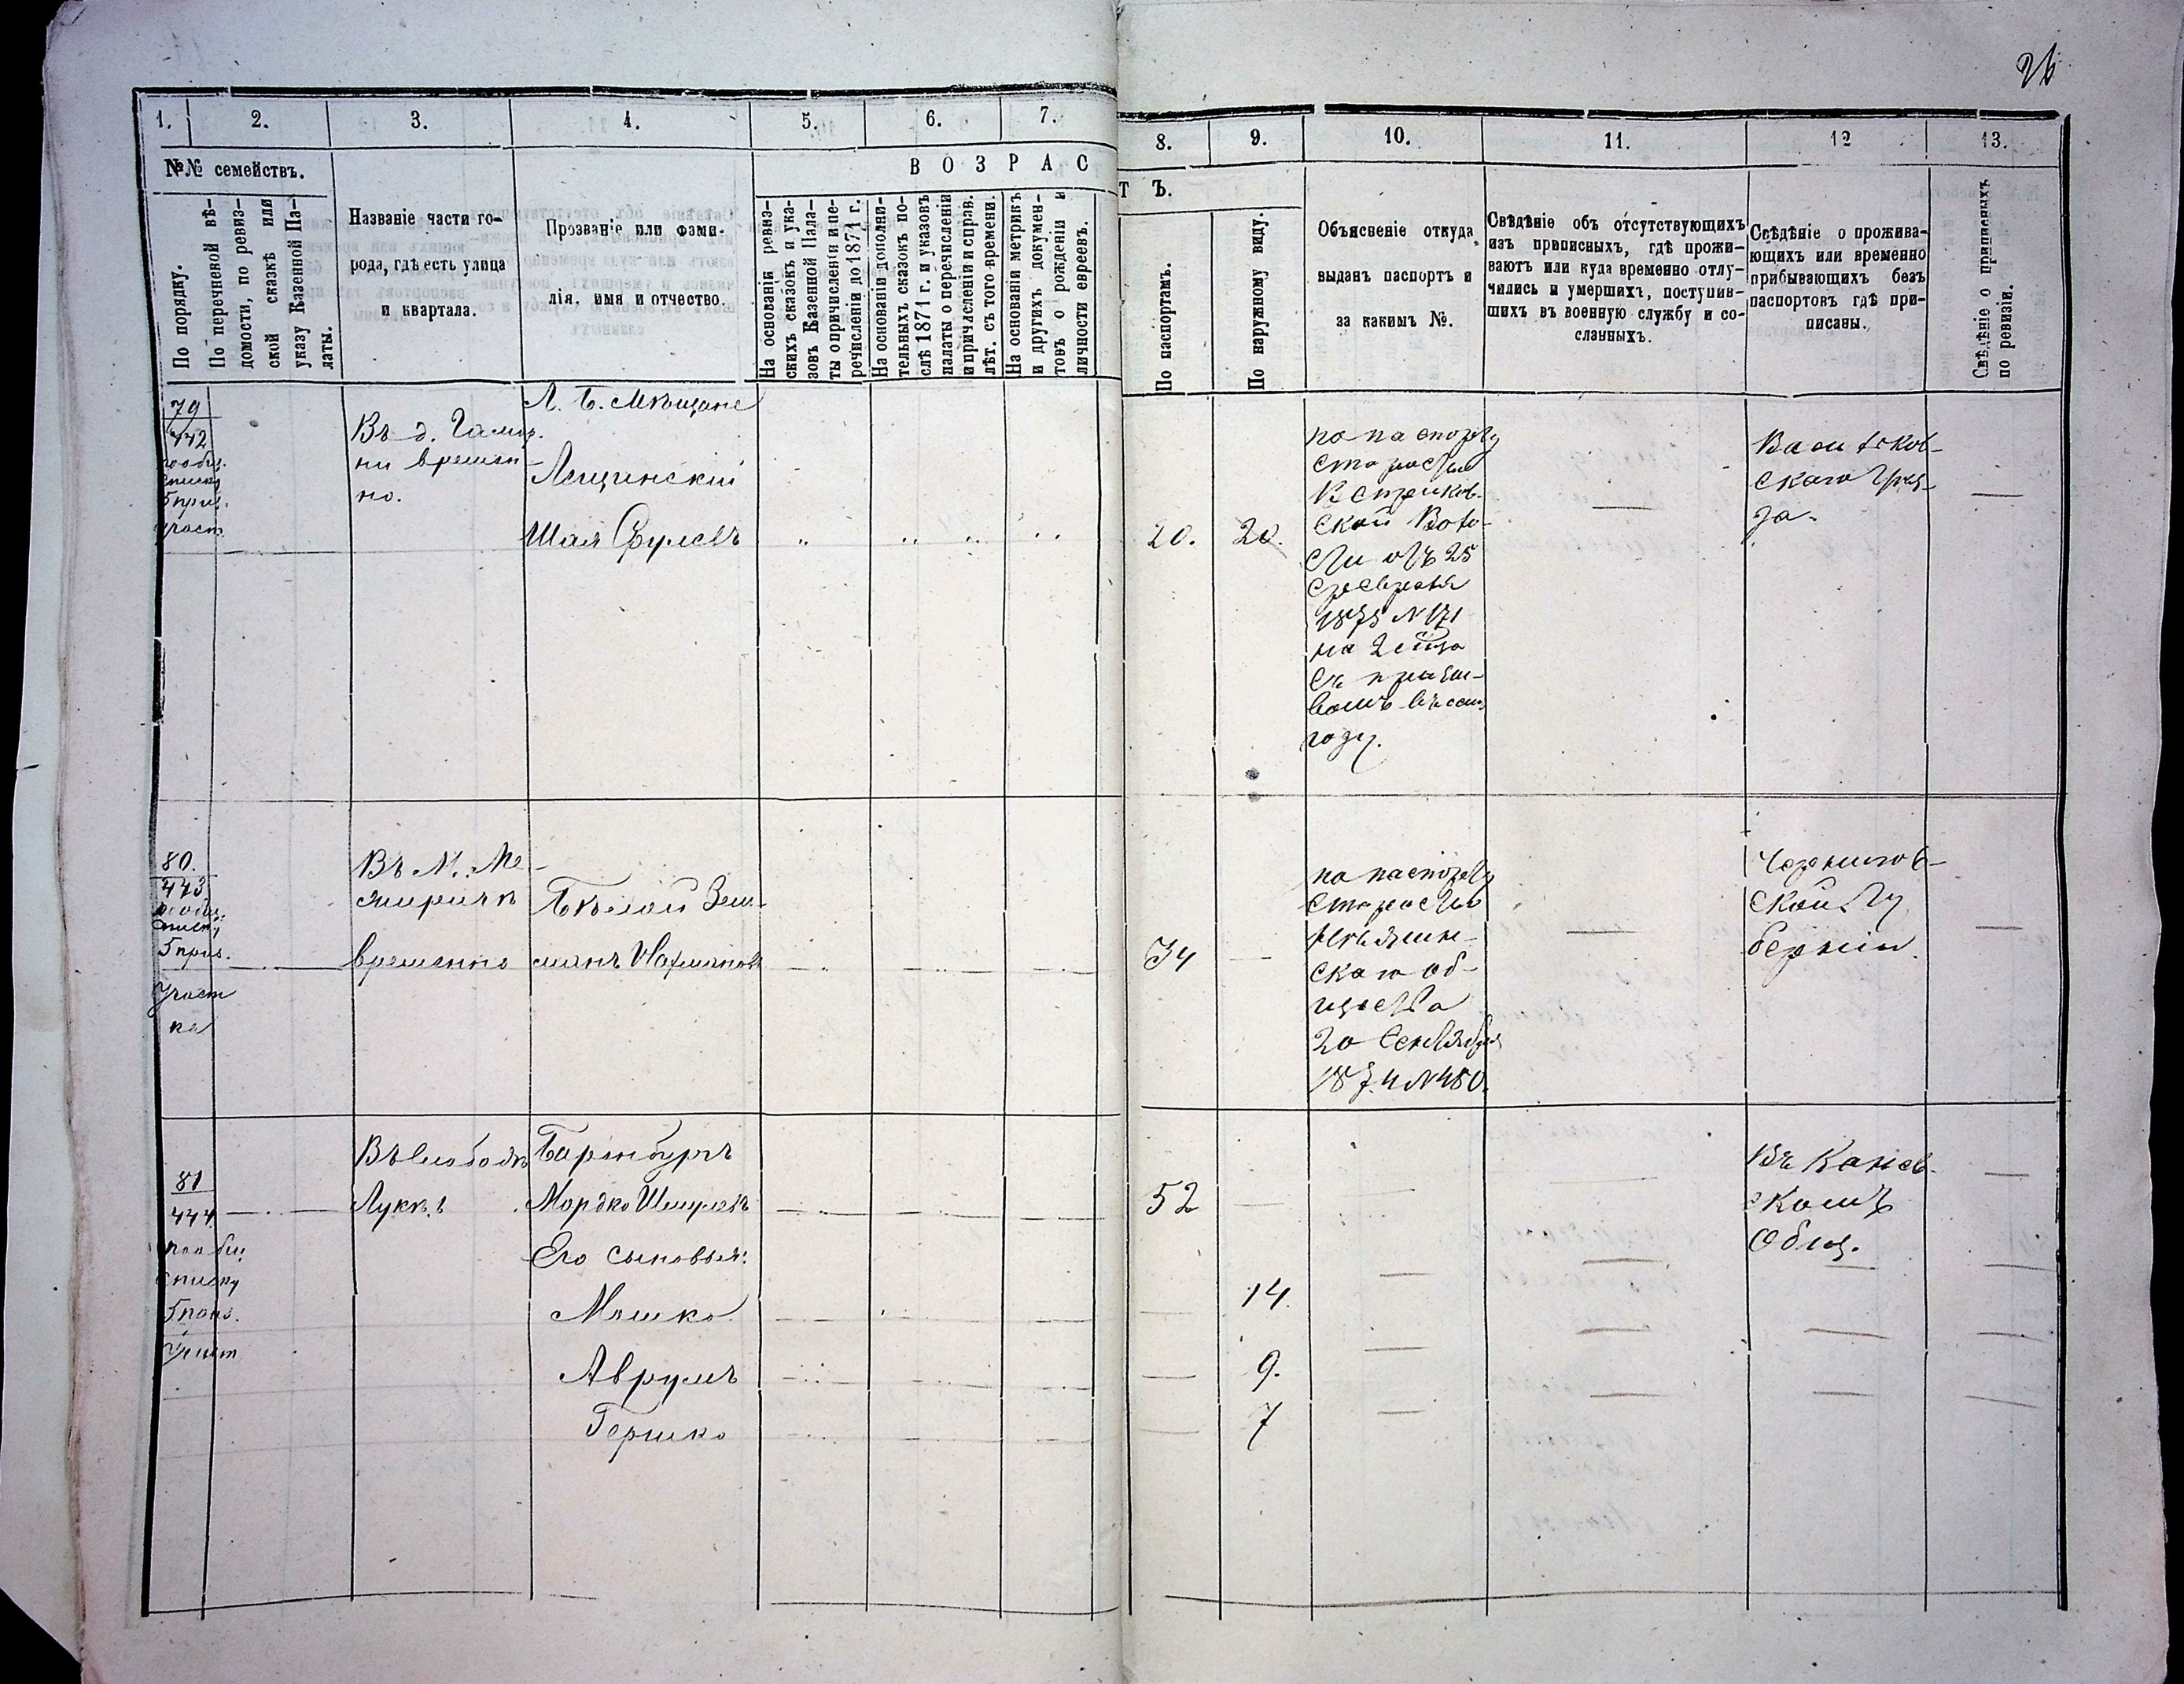 26
1.
2.
3.
4.
5.
6.
7.
8.
9.
10.
11.
12
13.
№№ семействъ.
По порядку.
По перечневой вѣ-
домости, по ревиз-
ской сказкѣ или
указу Казенной Па-
латы.
Названіе части го-
рода, гдѣ есть улица
и квартала.
Прозваніе или фами-
лія, имя и отчество.
ВОЗРАС
ТЪ.
На основаніи ревиз-
скихъ сказокъ и ука-
зовъ Казенной Пала-
ты о причисленіи и пе-
речисленіи до 1871 г.
На основаніи дополни-
тельныхъ сказокъ по-
слѣ 1871 г. и указовъ
палаты о перечисленіи
и причисленіи и справ.
лѣт. съ того времени.
На основаніи метрикъ
и другихъ докумен-
товъ о рожденіи и
личности евреевъ.
По паспортамъ.
По наружному виду.
Объясненіе откуда
выданъ паспортъ и
за какимъ №.
Свѣдѣніе объ отсутствующихъ
изъ приписныхъ, гдѣ прожи-
ваютъ или куда временно отлу-
чились и умершихъ, поступив-
шихъ въ военную службу и со-
сланныхъ.
Свѣдѣніе о прожива-
ющихъ или временно
прибывающихъ безъ
паспортовъ гдѣ при-
писаны.
Свѣдѣніе о приписныхъ
по ревизіи.
79
442
по общ.
списку
5 приз.
участ.
Въ д.
ни времен-
но.
Л. Б. Мѣщане
Лещинскій
Шая
20.
20.
по паспорту
старосты
ской Воло-
сти отъ 25
февраля
1875 № 171
на
съ
вомъ въ семъ
году.
Васильков-
скаго уѣз-
да.
80.
443
по общ.
списку
5 приз.
участ
ка
Въ М. Ме-
жиричѣ
временно
Бѣлой Зель-
манъ Нахмановъ
34
по паспорту
старосты
скаго об-
щества
20 Сентября
1874 № 480.
Чернигов-
ской Гу
берніи.
81
444
по общ
списку
5 приз.
участ
Въ слободѣ
Лукѣ
Баренбургъ
Мордко Шмулевъ
Его сыновья:
Мошко
Аврумъ
Гершко
52
14.
9.
7
Въ Канев-
скомъ
Общ.